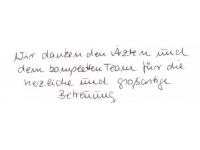 Wir danken den Ärzten und
dem kompletten Team für die
herzliche und großartige
Betreuung